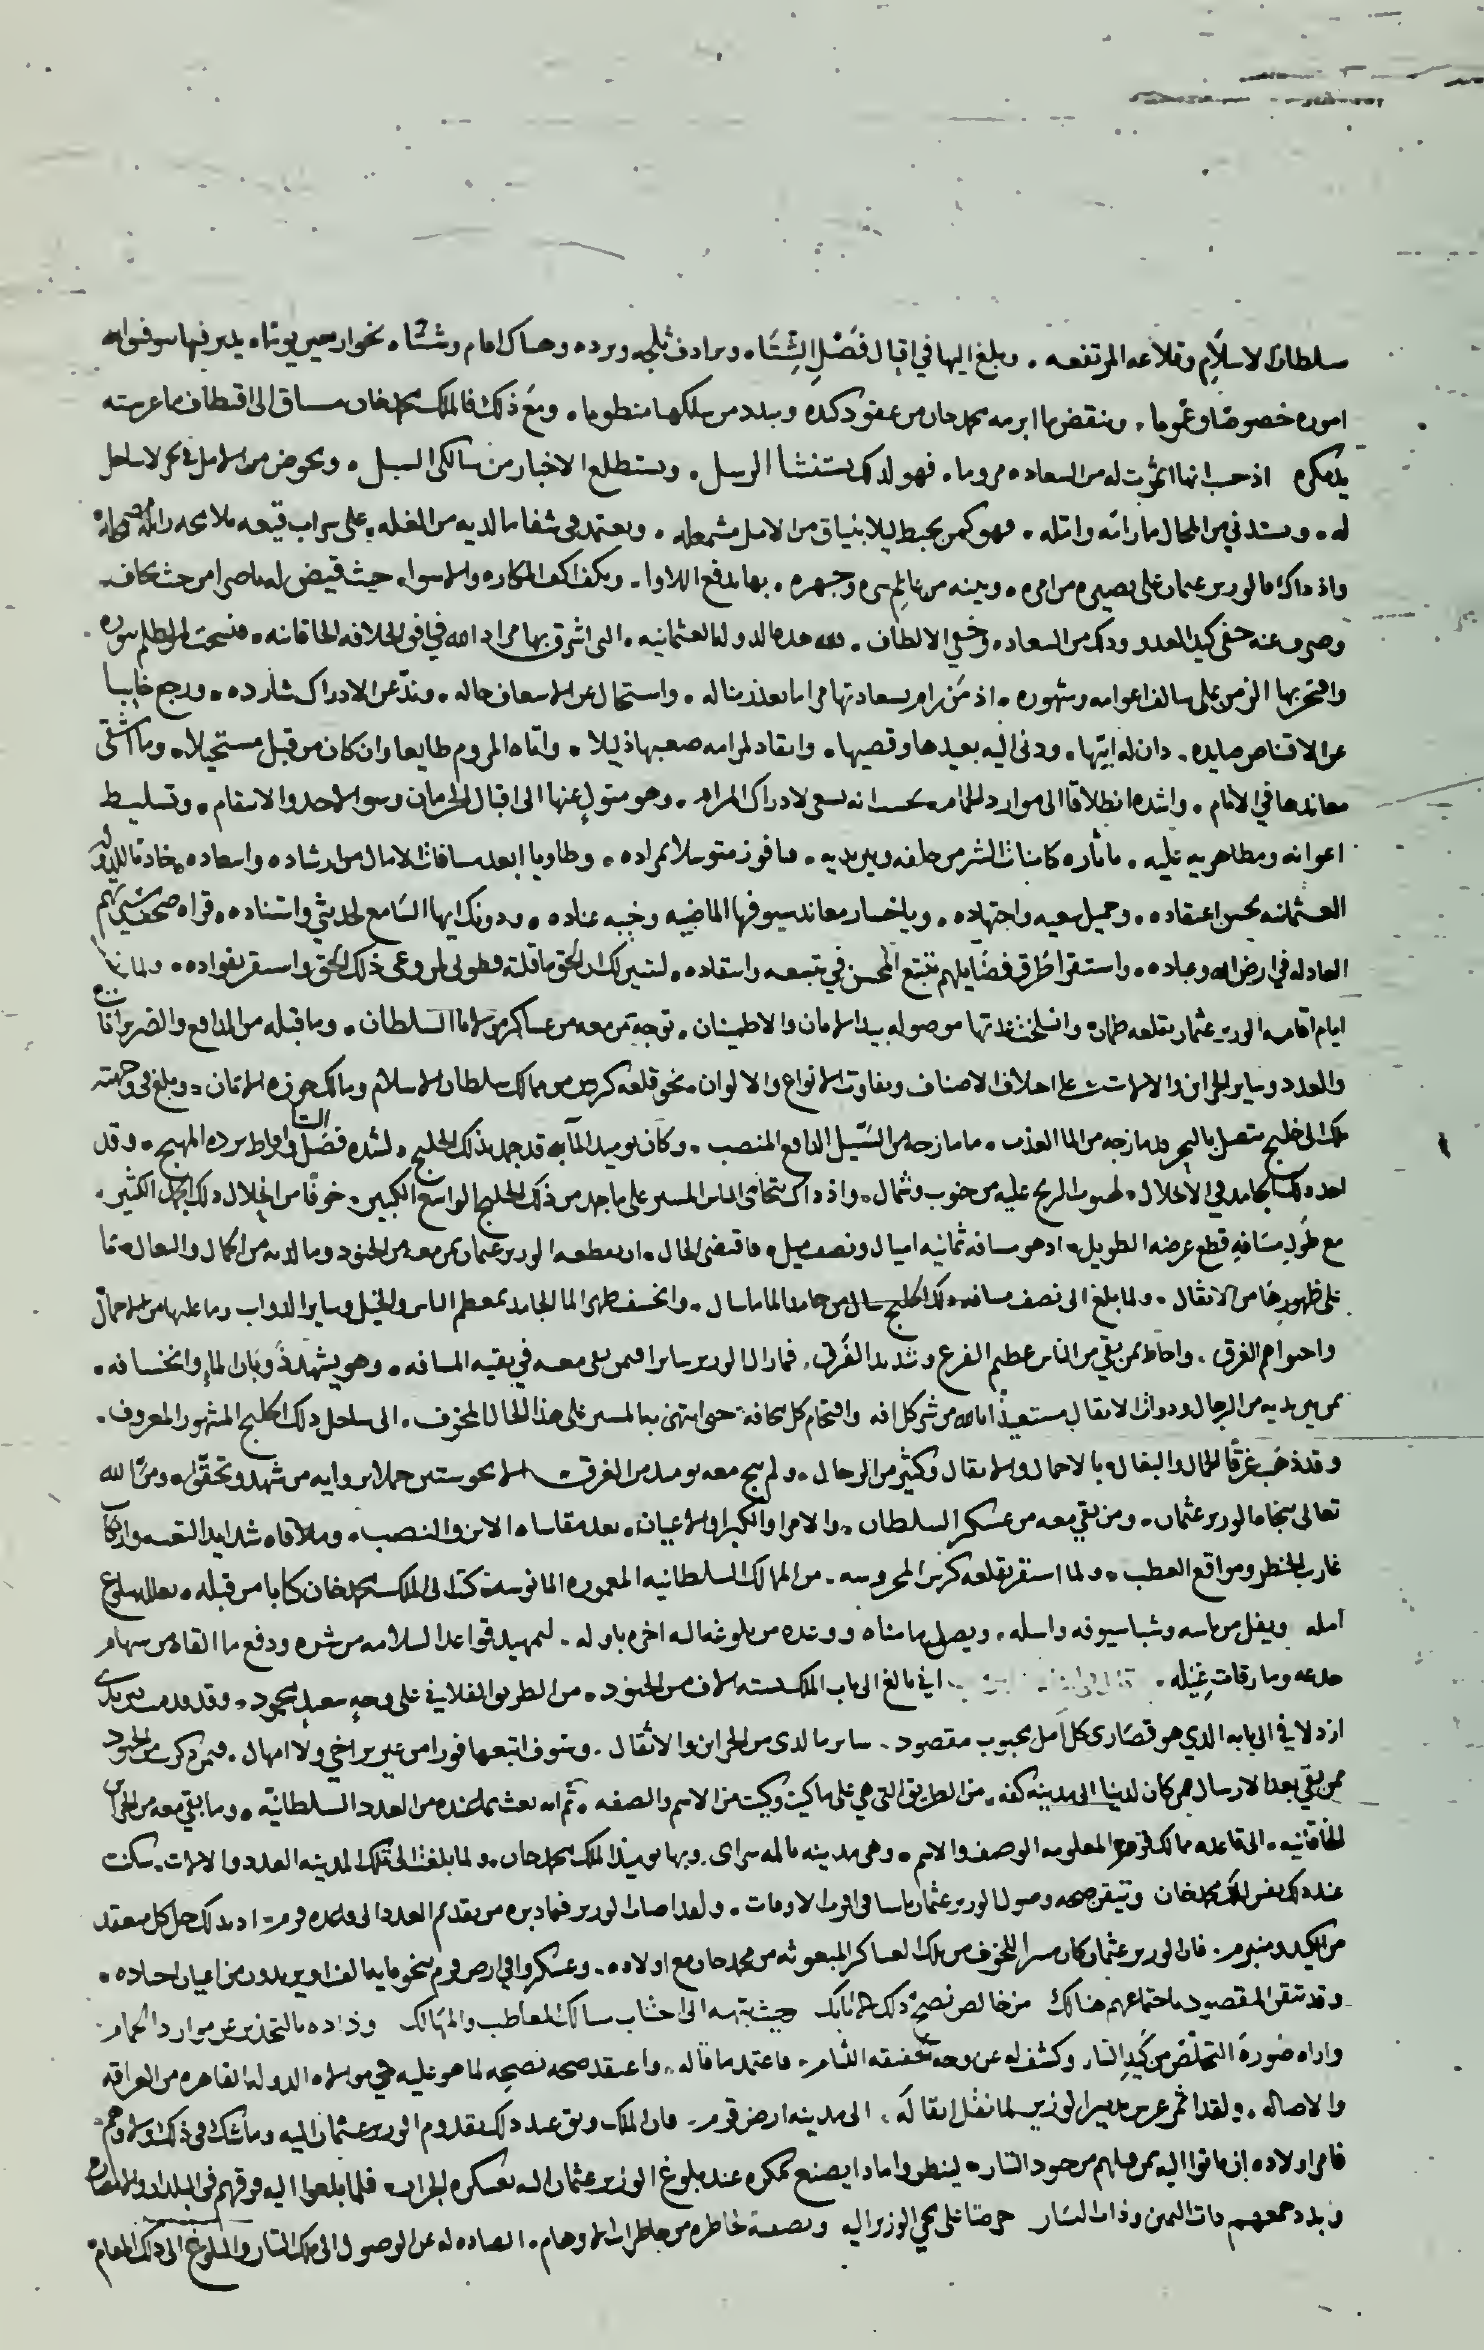 سلطان الاسلام وقلاعه المرتفعه . وبلغ اليها في اقبال فصل الشتا . وترادف ثلجه وبرده وهناك اقام وشتا . نحو اربعين يوما . يدبر فيها
اموره خصوصا وعموما . وينقض ما ابرمه محمد خان من عقود كيده ويبدد من سلكها منظوما . ومع ذلك فالملك محمد خان مساق الى اقتطاف ما غرسته
يد مكره اذ حسب انها اثمرت له من السعاده مروما . فهو لذلك يستنشا الرسل . ويستطلع الاخبار من سالكى السبل . ويخوض من الامل في بحر لا ساحل
له . ويستدني من المحال ما رامه وامله . فهو كمن يخبط ليلا بنياق من الامل مشمعله . ويعتمد في شفا ما لديه من الغله . على سراب قيعه
واذ ذاك فالوزير عثمان على بصيرة من امره . وبينه من عالم سره وجهره . بها يدفع اللاوا . ويكف اكف المكاره والاسوا . حيث قيض له ناصرا من حيث يخاف
وصرف عنه خفي كيد العدو وذلك من السعاده وخفي الالطاف . لله هذه الدوله العثمانيه . التي اشرق بها مراد الله في افق الخلافه الخاقانيه .
وافتخر بها الزمن على سالف اعوامه وشهوره . اذ من رام بسعادتها مراما بعد مناله . واستحال عن الاسعاف حاله . وندّ عن الادراك شارده . ورجع خايبا
عن الاقتناص صايده . دان له ابيّها . ودنى اليه بعيدها وقصيها . وانقاد لمرامه صعبها ذليلا . واتاه المروم طايعا وان كان من قبل مستحيلا . وما اشقى
معاندها في الانام . واشده انطلاقا الى موارد الحمام يحسب انه يسعى لادراك المرام . وهو متول عنها الى اقبال الحرمان وسو الاخذ والانتقام . وتسليط
اعوانه ومظاهريه عليه . باثاره كامنات الشر من خلفه وبين يديه . فيا فوز متوسلا بمراده . وطاويا ابعد مسافات الامال من ارشاده واسعاده .
العثمانيه بحسن اعتقاده . وجميل سعيه واجتهاده . ويا خسار معاند سيوفها الماضيه وخيبه عناده . ودونك ايها السامع لحديثي واسناده . قراه صحف سيرتهم
العادله في ارض الله وعباده . واستقرا طرق فضايلهم تتبع المحسن في تتبعه وانتقاده . لتبين لك ان الحق ما قلته فطوبى لمن وعى ذلك الحق واستقر بفواده .
ايام اقامه الوزير عثمان بقلعه طمان وانسلخت مدتها موصوله بيد الامان والاطمينان . توجه بمن معه من عساكر مولانا السلطان . وما قبله من المدافع والضربزانات
والعدد وساير الخزاين والالات على اختلاف الاصناف وتفاوت الانواع والالوان . نحو قلعه كرس من ممالك سلطان الاسلام ومالك حوزه الايمان . وبلغ في وجهته
تلك الى خليج متصل بالبحر قد مازجه من الما العذب . ما مازجه من السيل الدافع المنصب . وكان يوميذ الما به قد جمد بذلك الخليج . لشده فصل الشتا وافراط برده المهيج . وقد
اخذ ذلك الجامد في الانحلال . لهبوب الريح عليه من جنوب وشمال . واذ ذاك يتحامى الناس المسير على ما جمد من ذلك الخليج الواسع الكبير . خوفا من انحلال ذلك الجمد الكثير .
مع طول مسافه قطع عرضه الطويل . اذ هو مسافه ثمانيه اميال ونصف ميل . فاقتضى الحال . ان يقطعه الوزير عثمان بمن معه من الجنود وما لديه من الجمال والبغال . بما
على ظهورها من الاثقال . ولما بلغ الى نصف مسافه ذلك الخليج سال من جامد الما ما سال . وانخسف ظهر الما الجامد بمعظم الناس والخيل وساير الدواب وما عليها من الاحمال
واحتواهم الغرق . واحاط بمن بقي من الناس عظيم الفزع وشديد الفرق . فما زال الوزير سايرا فيمن بقي معه في بقيه المسافه . وهو يشهد ذوبان الما وانخسافه .
بمن بين يديه من الرجال وذوات الاثقال مستعيذا بالله من شر كل افه واقتحام كل مخافه حتى انتهى به المسير على هذا الحال المخوف . الى ساحل ذلك الخليج المشهور المعروف .
وقد ذهب غرقا الخيل والبغال . بالاحمال والاثقال وكثير من الرجال . ولم ينج معه يوميذ من الغرق الا نحو ستين جملا برواية من شهد وتحققه . ومن الله
تعالى بنجاه الوزير عثمان . ومن بقي معه من عسكر السلطان . والامرا والكبرا والاعيان . بعد مقاساه الاين والنصب . وملاقاه شدايد التعب وارتكاب
غارب الخطر ومواقع العطب . ولما استقر بقلعه كرس المحروسه . من الممالك السلطانيه المعموره المانوسه كتب الى الملك محمد خان كتابا من قبله . يعلله ببلوغ
امله ويفل من باسه وشبا سيوفه واسله . ويصل ما مناه ووعده من بلوغه اليه اخره باوله . لتمهيد قواعد السلامه من شره ودفع ما القاه من سهام
خدعه ومارقات غيله . اني بالغ الى باب الملك بسته الاف من الجنود . من الطريق الفلاني على وجه سعيد محمود . وقد قدمت بين يدي
ازدلافي الى بابه الذي هو قصارى كل امل محبوب مقصود . ساير ما لدي من الخزاين والاثقال . وسوف اتبعها فورا من غير تراخي ولا امهال . فيمن ذكرت من الجنود
ممن بقي بعد الارسال ممن كان لدينا الى مدينه كفه . من الطريق التي هي على ما كيت وكيت من الاسم والصفه . ثم انه بعث بما عنده من العدد السلطانيه . وما بقي معه من الخزاين
الخاقانيه . الى قاعده ممالك قرم المعلومه الوصف والاسم . وهي مدينه باغجه سراى . وبها يوميذ الملك محمد خان . ولما بلغت الى تلك المدينه العدد والالات . سكنت
عند ذلك نفس الملك محمد خان وتيقن صحه وصول الوزير عثمان باشا في اقرب الاوقات . ولقد اصاب الوزير فيما دبره من تقديم العدد الى قاعده قرم . اذ بذلك حل كل منعقد
من الكيد ومنبرم . فان الوزير عثمان كان مسرا للخوف من تلك العساكر المبعوثه من محمد خان مع اولاده . وعسكروا في ارض قرم بنحو مايه الف او يزيدون من اعيان اجناده .
وقد تيقن المقصود باجتماعهم هنالك من خالص نصيح ذلك الاتابك حيث نبهه الى اجتناب مسالك المعاطب والمهالك وذاده بالتحذير عن موارد الحمام
واراه صوره التخلص من كيد التتار وكشف له عن وجه حقيقته اللثام . فاعتمد ما قاله . واعتقد صحه نصحه لما هو عليه في موالاه الدوله القاهره من العراقه
والاصاله . ولقد اثمر غرس تدبير الوزير لما نقل اثقاله . الى مدينه ارض قرم . فان الملك وثق عند ذلك بقدوم الوزير عثمان اليه وما شك في ذلك ولا وهم
فامر اولاده ان ياتوا اليه بمن قبلهم من جنود التتار . لينظروا ماذا يصنع بمكره عند بلوغ الوزير عثمان اليه بعسكره الجرار . فلما بلغوا اليه فرقهم في البلدان والامصار
وبدد جمعهم ذات اليمين وذات اليسار حرصا على مجي الوزير اليه وتصفيه لخاطره من خاطرات الاوهام . الصاده له عن الوصول الى ملك التتار والبلوغ الى ذلك المقام